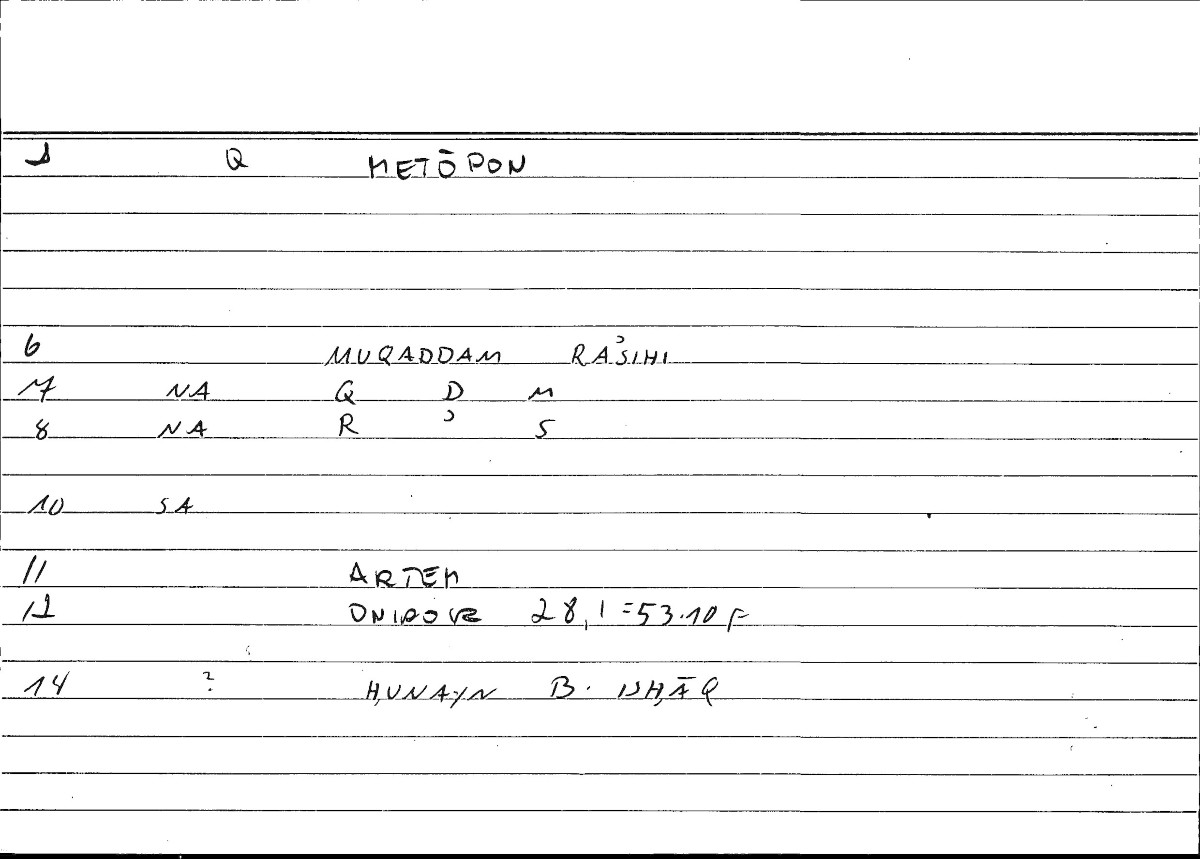 1 Q METŌPON
6 MUQADDAM RAʾSIHI
7 NA Q D M
8 NA R ʾ S
10 SA
11 ARTEM
12 ONIROKR 28,1=53.10 F
14 ? ḤUNAYN B. ISḤĀQ